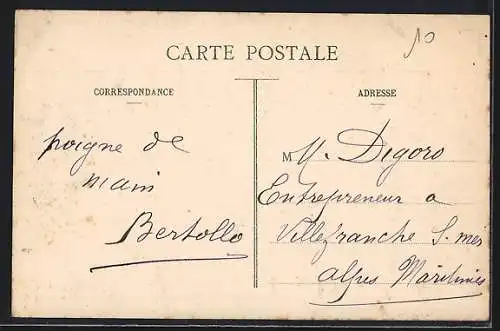 10
CARTE POSTALE
CORRESPONDANCE
ADRESSE
poigne de
main
Bertollo
M M. Digoro
Entrepreneur a
Villefranche S. mer
alpes Maritimes